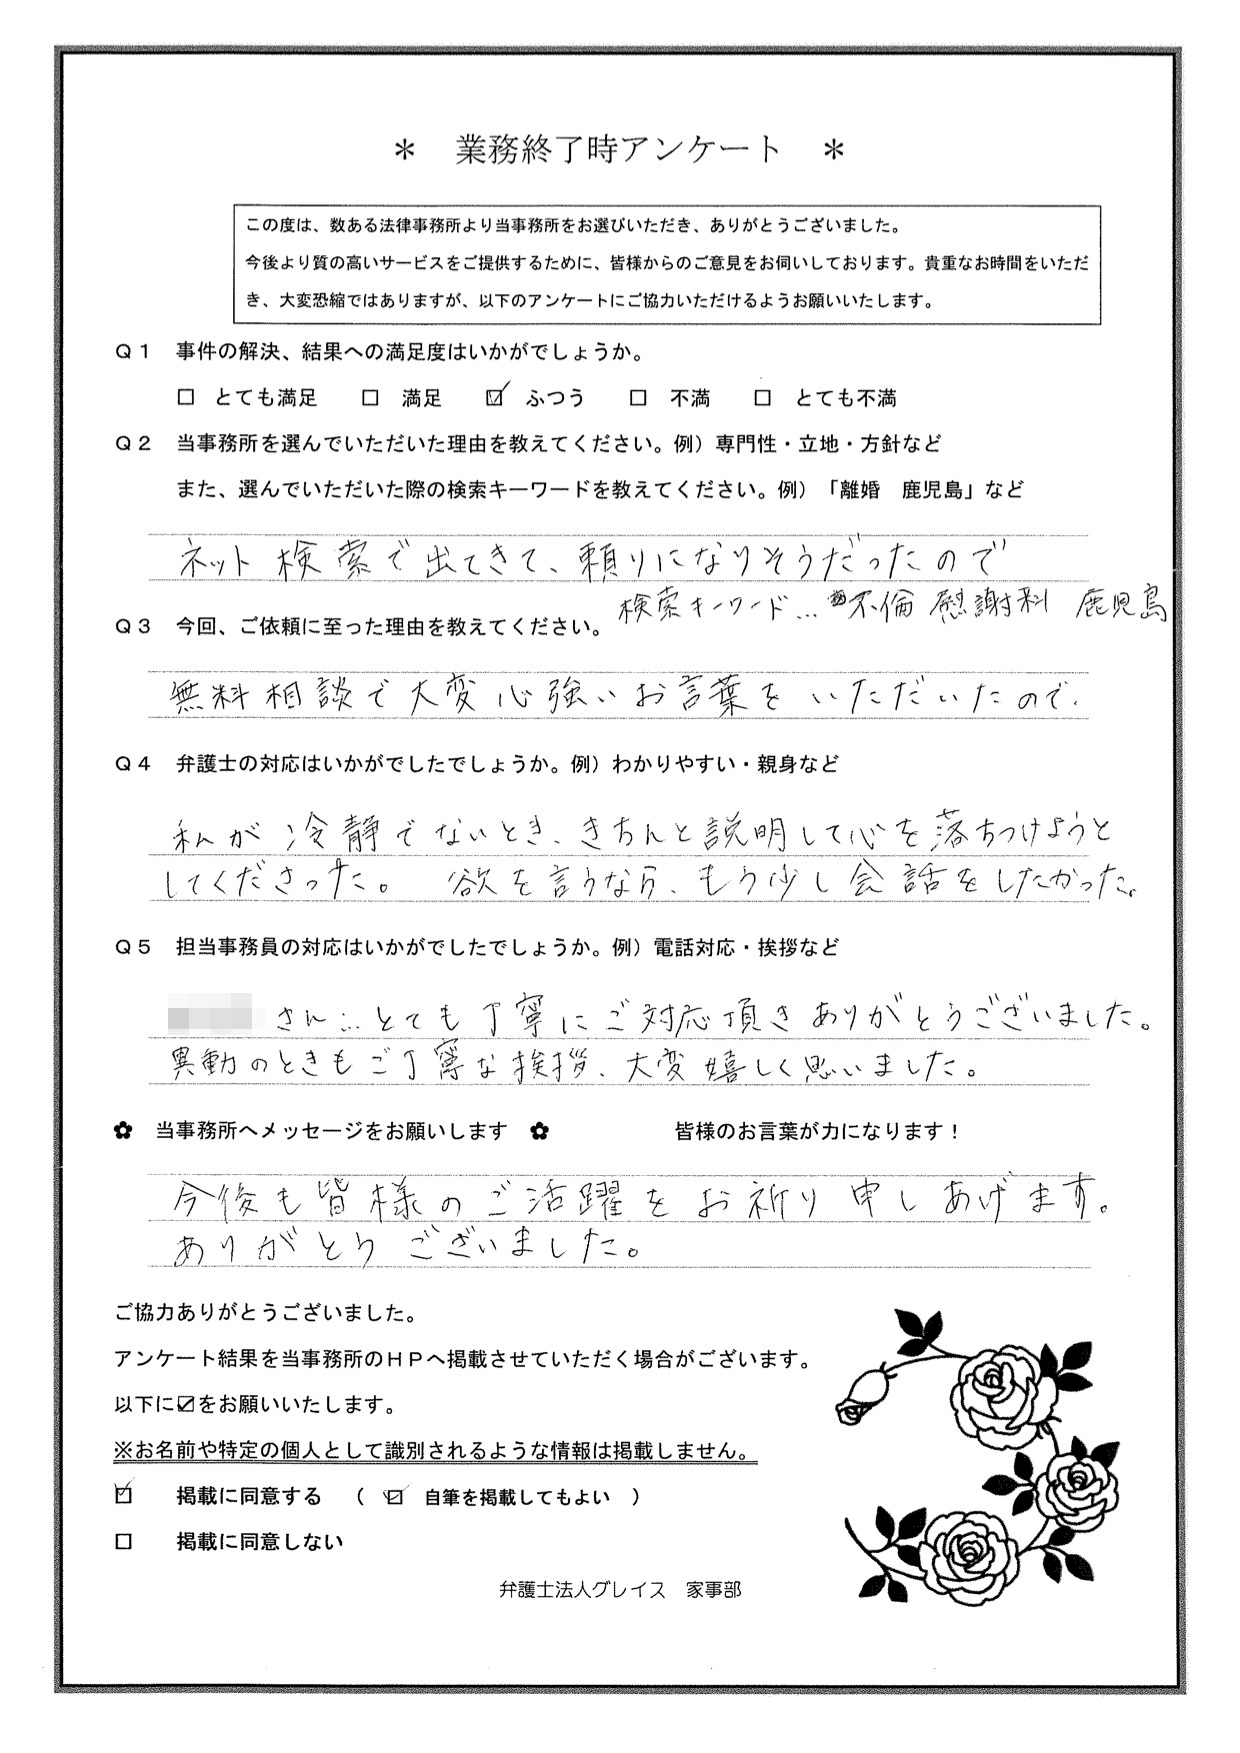 ＊　業務終了時アンケート　＊
この度は、数ある法律事務所より当事務所をお選びいただき、ありがとうございました。
今後より質の高いサービスをご提供するために、皆様からのご意見をお伺いしております。貴重なお時間をいただ
き、大変恐縮ではありますが、以下のアンケートにご協力いただけるようお願いいたします。
Ｑ１　事件の解決、結果への満足度はいかがでしょうか。
□　とても満足　□　満足　☑　ふつう　□　不満　□　とても不満
Ｑ２　当事務所を選んでいただいた理由を教えてください。例）専門性・立地・方針など
また、選んでいただいた際の検索キーワードを教えてください。例）「離婚　鹿児島」など
ネット検索で出てきて、頼りになりそうだったので
検索キーワード…不倫 慰謝料 鹿児島
Ｑ３　今回、ご依頼に至った理由を教えてください。
無料相談で大変心強いお言葉をいただいたので.
Ｑ４　弁護士の対応はいかがでしたでしょうか。例）わかりやすい・親身など
私が冷静でないとき、きちんと説明して心を落ちつけようと
してくださった。　欲を言うなら、もう少し会話をしたかった。
Ｑ５　担当事務員の対応はいかがでしたでしょうか。例）電話対応・挨拶など
さん…とても丁寧にご対応頂きありがとうございました。
異動のときもご丁寧な挨拶、大変嬉しく思いました。
✿　当事務所へメッセージをお願いします　✿　皆様のお言葉が力になります！
今後も皆様のご活躍をお祈り申しあげます。
ありがとうございました。
ご協力ありがとうございました。
アンケート結果を当事務所のＨＰへ掲載させていただく場合がございます。
以下に☑をお願いいたします。
※お名前や特定の個人として識別されるような情報は掲載しません。
☑　掲載に同意する　（　☑　自筆を掲載してもよい　）
□　掲載に同意しない
弁護士法人グレイス　家事部